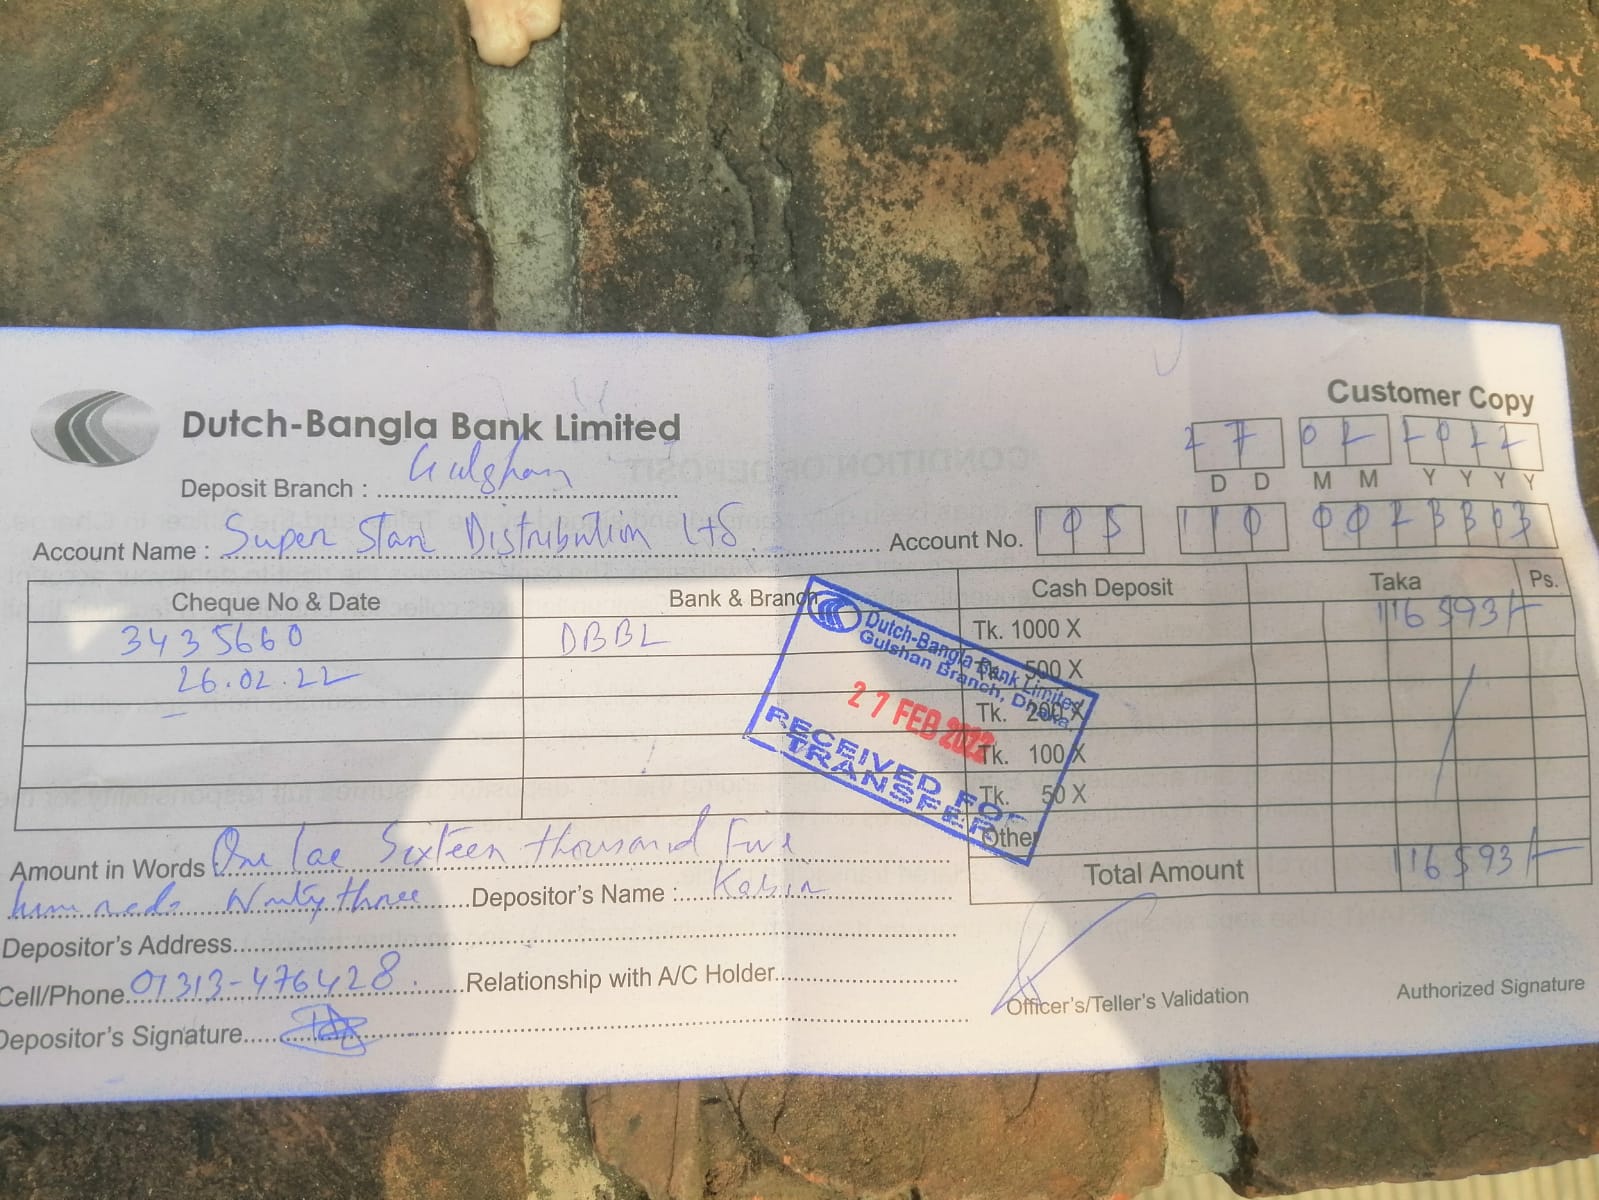 Customer Copy
Dutch-Bangla Bank Limited
27 02 2022
D D M M Y Y Y Y
Deposit Branch : Gulshan
Account Name : Super Star Distribution Ltd. Account No. 105 110 0023303
Cheque No & Date Bank & Branch Cash Deposit Taka Ps.
3435660 DBBL Tk. 1000 X 116593/-
26.02.22 Tk. 500 X
Tk. 200 X
Tk. 100 X
Tk. 50 X
Other
Dutch-Bangla Bank Limited
Gulshan Branch, Dhaka.
27 FEB 2022
RECEIVED FOR
TRANSFER
Total Amount 116593/-
Amount in Words One lac Sixteen thousand Five
Depositor's Name : Kabir
Depositor's Address
Cell/Phone 01313-476428 Relationship with A/C Holder
Depositor's Signature
Officer's/Teller's Validation Authorized Signature